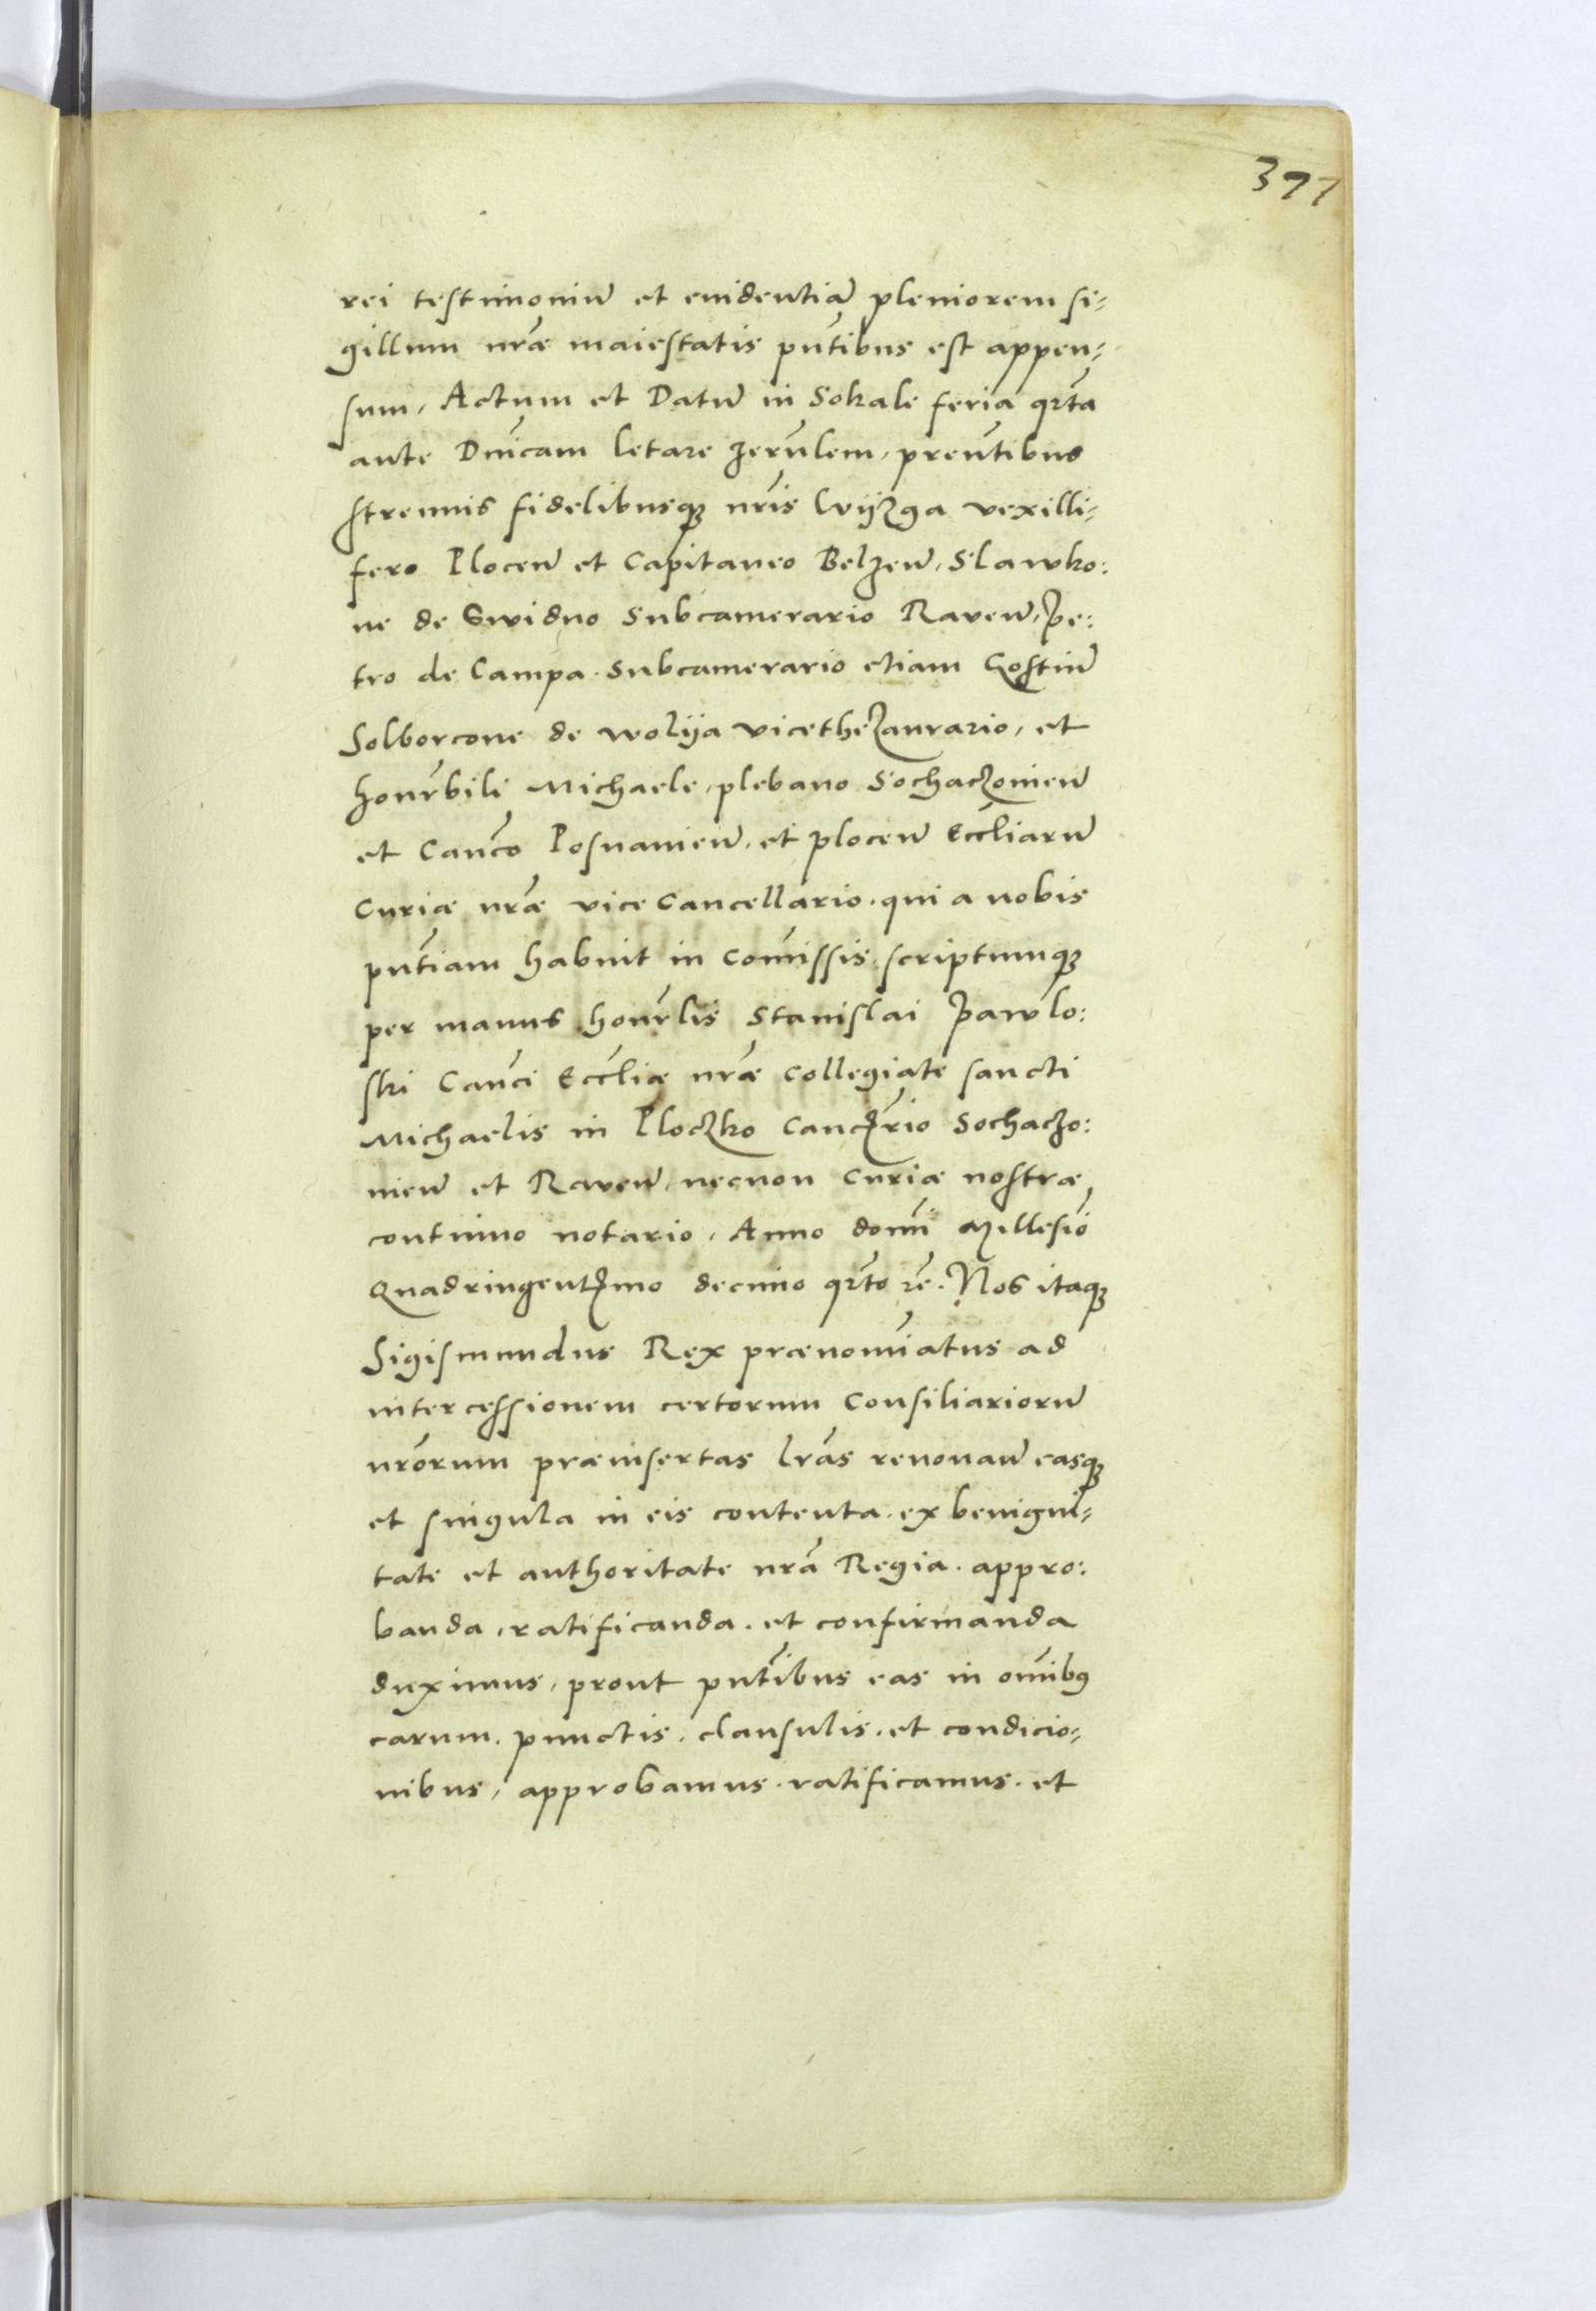 377
rei testimoniū et euidentiā pleniorem si-
gillum nrāe maiestatis pn̄tibus est appen-
sum, Actum et Datū in Sokale feria qrta
ante Dn̄icam letare Jerūlem, pren̄tibus
strenuis fidelibusqꝫ nr̄is Wyzga vexilli-
fero Plocen̄ et Capitaneo Belzen̄, Slawko:
ne de Gwidno Subcamerario Raven̄, Pe:
tro de Campa Subcamerario etiam Gostin̄
Solborcone de wolya vicethezaurario, et
honr̄bili Michaele, plebano Sochaczonien̄
et Can̄co Posnanien̄, et plocen̄ Eccl̄iarū
Curiæ nrāe vice Cancellario. qui a nobis
pn̄tiam habuit in com̄issis. scriptumqꝫ
per manus honr̄lis Stanislai Pawlo:
ski Can̄ci Eccl̄iæ nrāe collegiate sancti
Michaelis in Ploczko Canczr̄io Sochaczo:
nien̄ et Raven̄, necnon curiæ nostræ
continuo notario, Anno domī Millesīo
Quadringentꝫmo decimo qrto rē. Nos itaqꝫ
Sigismundus Rex prænomīatus ad
intercessionem certorum Consiliariorū
nrōrum præinsertas lrās renouan̄ easqꝫ
et singula in eis contenta. ex benigni-
tate et authoritate nrā Regia. appro:
banda, ratificanda. et confirmanda
duximus, prout pn̄tibus eas in om̄ibꝰ
earum. punctis. clausulis. et condicio-
nibus, approbamus. ratificamus. et